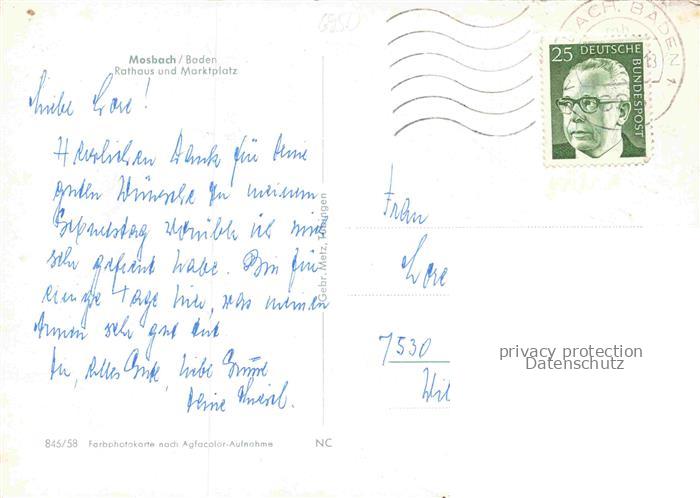 6950
Mosbach / Baden
Rathaus und Marktplatz
Liebe Lore!
Herzlichen Dank für Deine
guten Wünsche zu meinem
Geburtstag worüber ich mich
sehr gefreut habe. Bin für
einige Tage hier, was meinen
Armen sehr gut tut.
Dir, alles Gute, liebe Grüsse
Deine
845/58 Farbphotokarte nach Agfacolor-Aufnahme NC
Gebr. Metz, Tübingen
BACH, BADEN 1
25 DEUTSCHE
BUNDESPOST
Frau
Lore
7530
privacy protection
Datenschutz